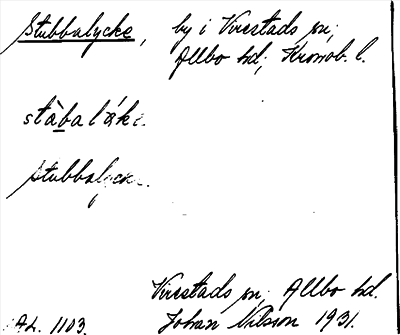 Stubbalycke, by i Virestads sn;
Allbo hd; Kronob. l.
stàbalák
Stubbalycke.
Virestads sn; Allbo hd.
AL. 1103. Johan Nilsson 1931.